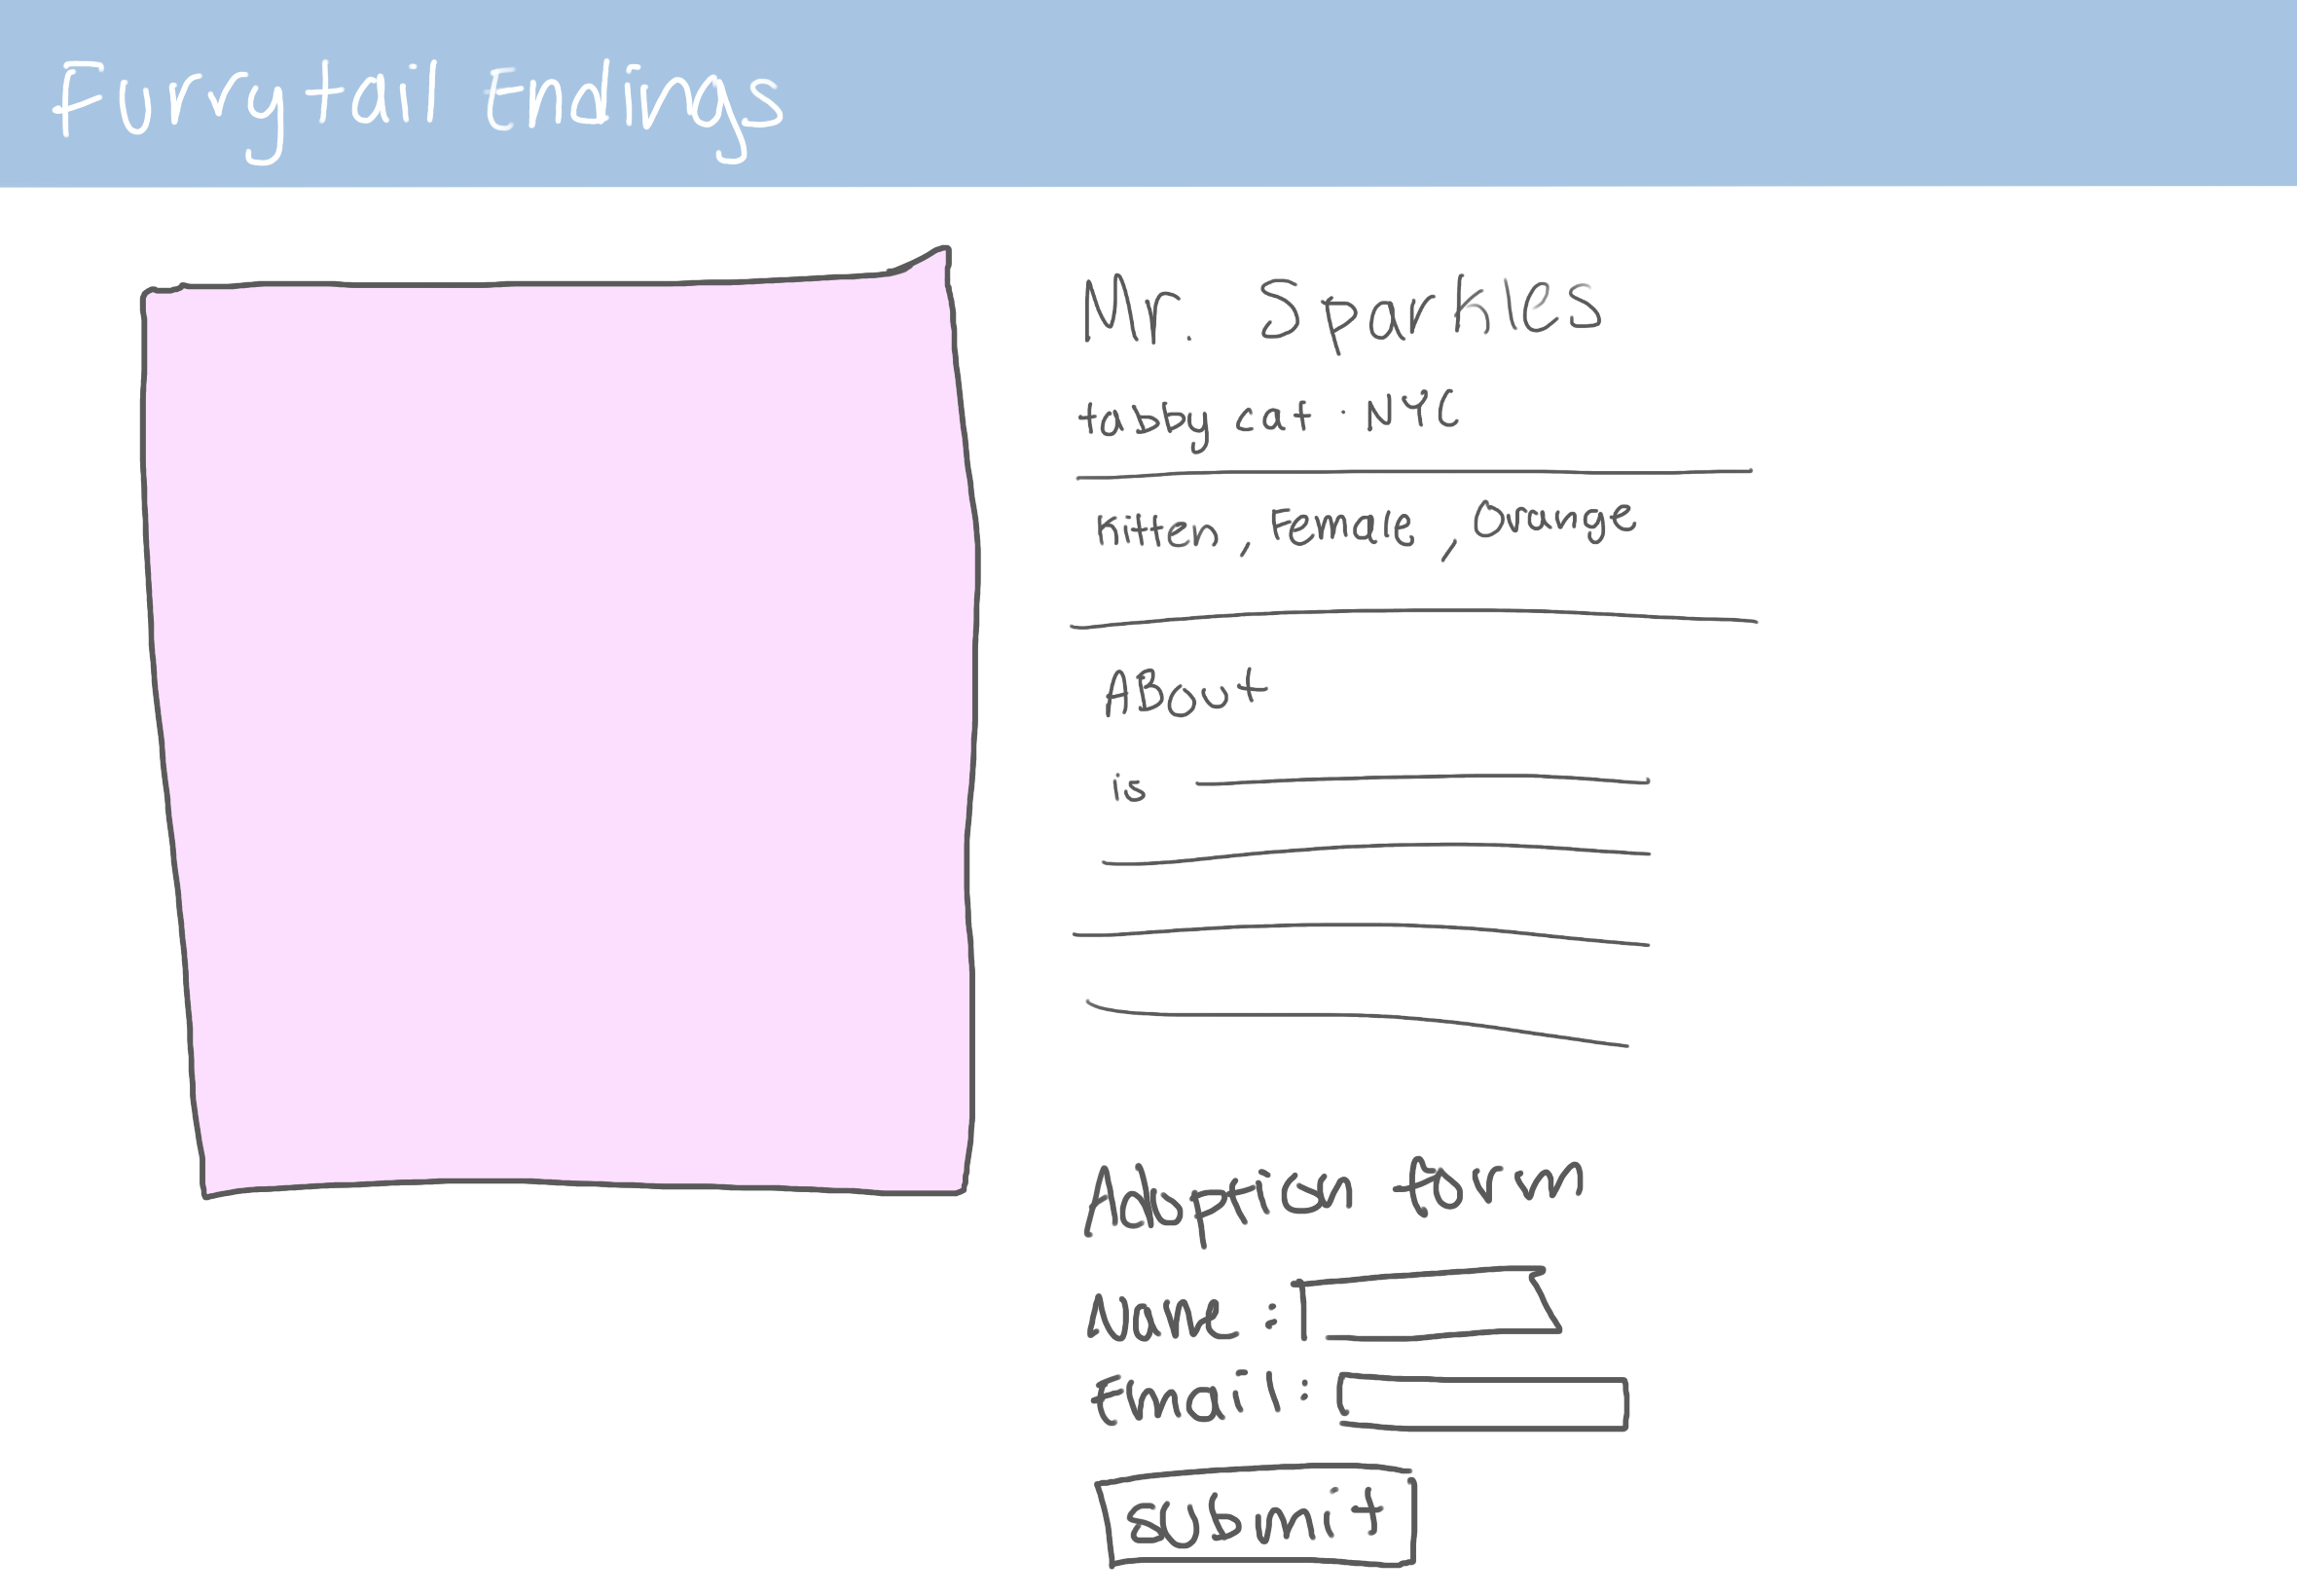 Furrytail Endings
Mr. Sparkles
tabby cat · NYC
kitten, Female, Orange
ABout
is
Adoption form
Name:
Email:
submit